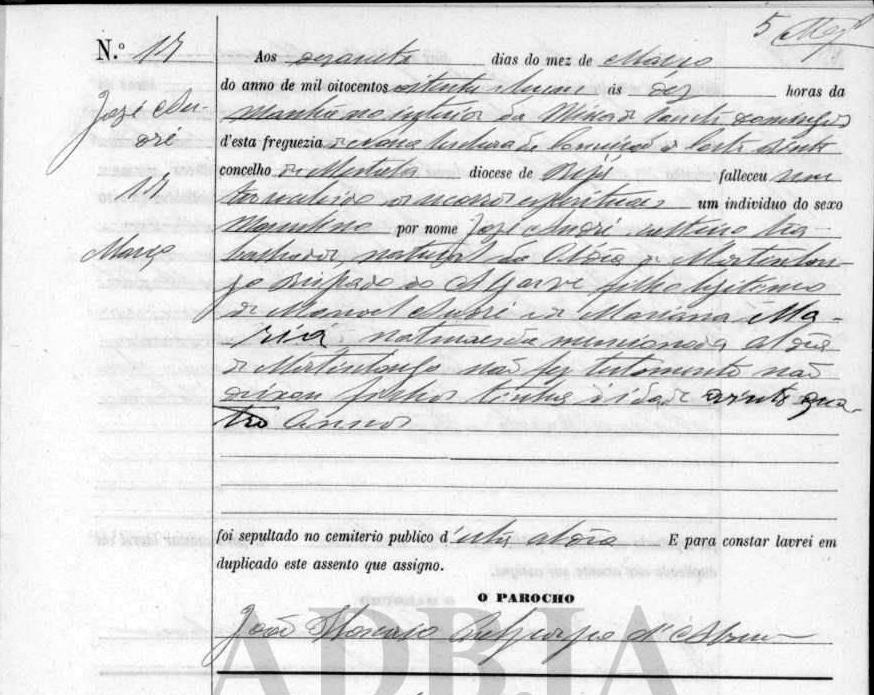 5
N.º 17
José An-
dré
17
Março
Aos dias do mez de Março
do anno de mil oitocentos oitenta e um ás dez horas da
manhã no interior da Mina de São Domingos
d'esta freguezia de Nossa Senhora da Conceição de Corte do Pinto
concelho de Mertola diocese de Beja falleceu sem
ter recebido os soccorros espirituaes um individuo do sexo
Masculino por nome José André tra-
balhador, natural da Aldeia de Martinlon-
go Bispado do Algarve filho legitimo
de Manoel André e de Mariana Ma-
ria, naturaes da mencionada aldeia
de Martinlongo não fez testamento não
deixou filhos tinha d'idade vinte qua-
tro annos
foi sepultado no cemiterio publico d'esta aldeia E para constar lavrei em
duplicado este assento que assigno.
O PAROCHO
João d'Abreu
ADBJA